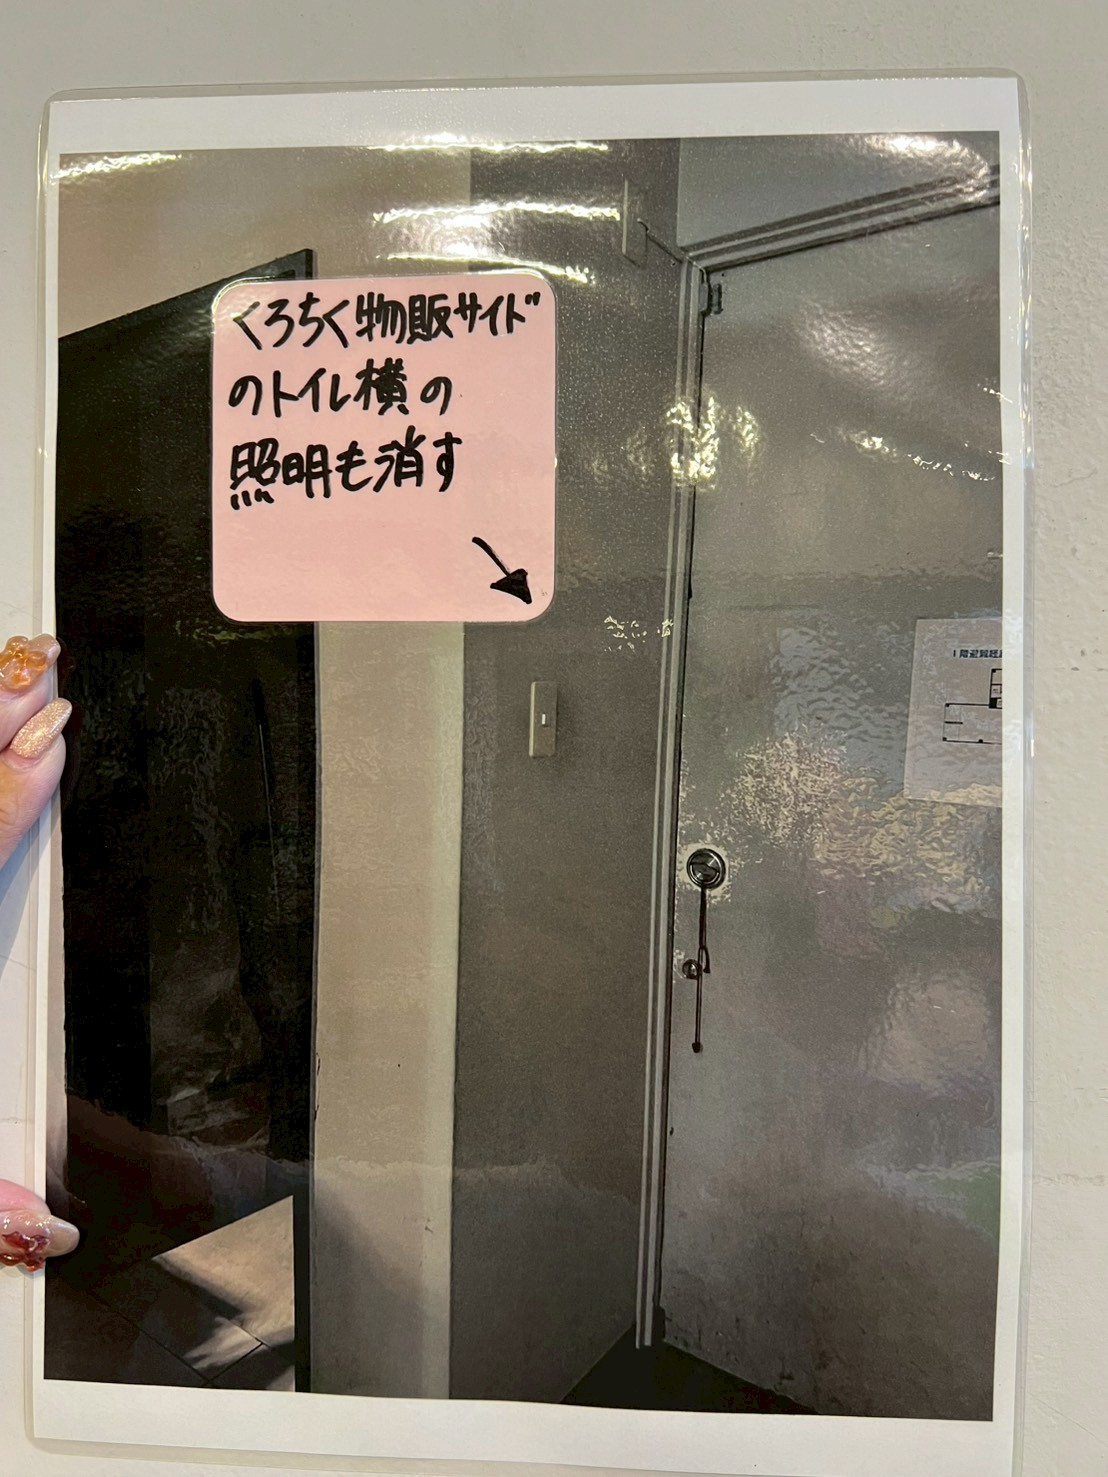 くろちく物販サイド
のトイレ横の
照明も消す
1階避難経